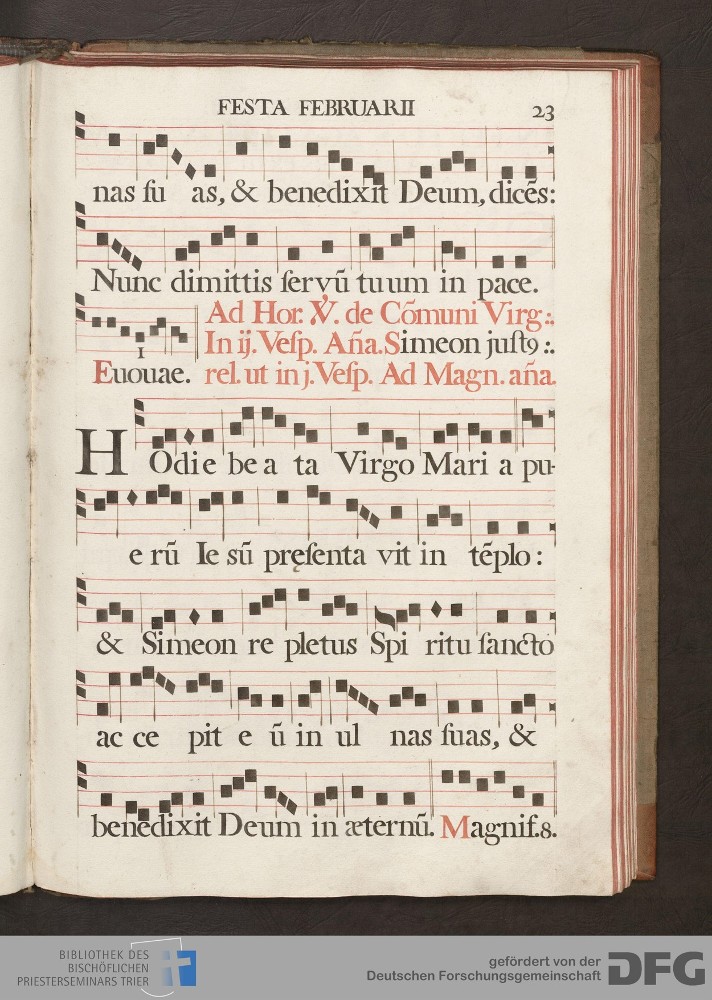 FESTA FEBRUARII 23
nas su as, & benedixit Deum, dicẽs:
Nunc dimittis servũ tuum in pace.
Ad Hor. ℣. de Cõmuni Virg:.
In ij. Vesp. Aña. Simeon just9 :.
1
Euouae. rel. ut in j. Vesp. Ad Magn. aña.
HOdie be a ta Virgo Mari a pu-
e rũ Ie sũ pręsenta vit in tẽplo:
& Simeon re pletus Spi ritu sancto
ac ce pit e ũ in ul nas suas, &
benedixit Deum in æternũ. Magnif. 8.
BIBLIOTHEK DES
BISCHÖFLICHEN
PRIESTERSEMINARS TRIER
gefördert von der
Deutschen Forschungsgemeinschaft DFG